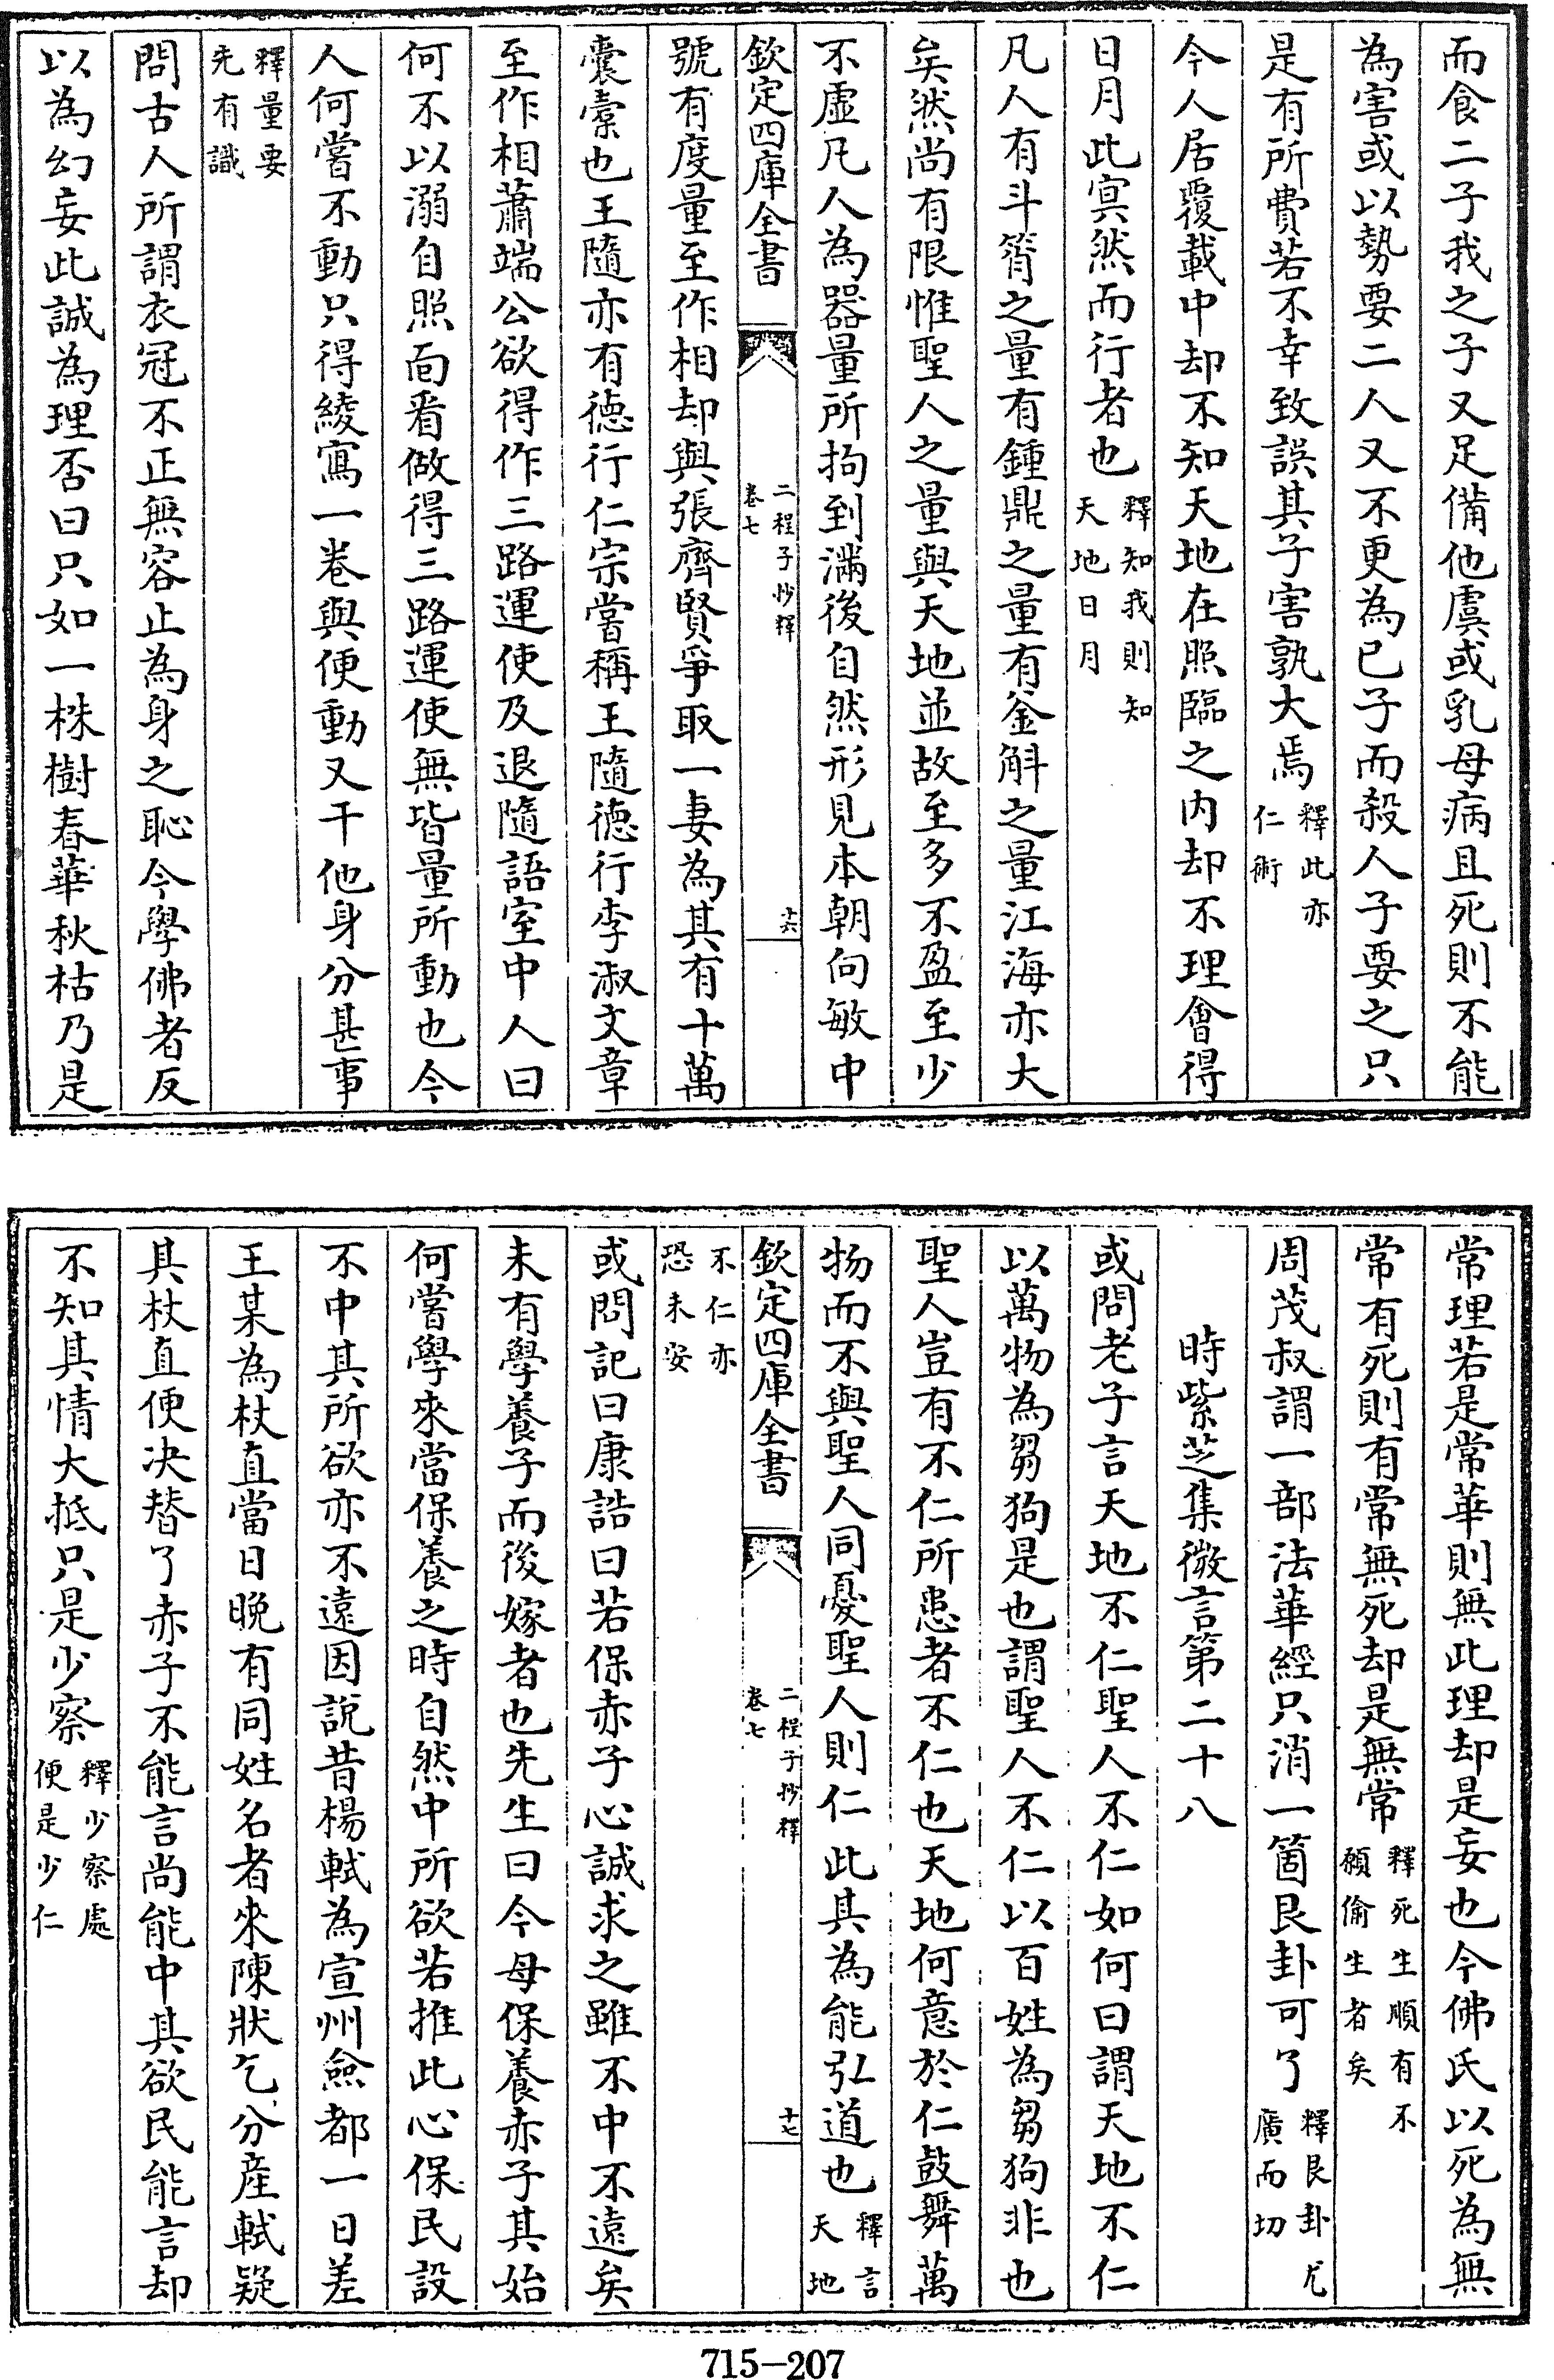 而食二子我之子又足備他虞或乳母病且死則不能
為害或以勢要二人又不更為已子而殺人子要之只
是有所費若不幸致誤其子害孰大焉釋此亦仁術
今人居覆載中却不知天地在照臨之内却不理會得
日月此冥然而行者也釋知我則知天地日月
凡人有斗筲之量有鍾鼎之量有釜斛之量江海亦大
矣然尚有限惟聖人之量與天地並故至多不盈至少
不虛凡人為器量所拘到滿後自然形見本朝向敏中
欽定四庫全書 二程子抄釋卷七 十六
號有度量至作相却與張齊賢爭取一妻為其有十萬
囊槖也王隨亦有徳行仁宗嘗稱王隨徳行李淑文章
至作相蕭端公欲得作三路運使及退隨語室中人曰
何不以溺自照面看做得三路運使無皆量所動也今
人何嘗不動只得綾寫一卷與便動又干他身分甚事
釋量要先有識
問古人所謂衣冠不正無容止為身之恥今學佛者反
以為幻妄此誠為理否曰只如一株樹春華秋枯乃是
常理若是常華則無此理却是妄也今佛氏以死為無
常有死則有常無死却是無常釋死生順有不願偷生者矣
周茂叔謂一部法華經只消一箇艮卦可了釋艮卦尤廣而切
時紫芝集微言第二十八
或問老子言天地不仁聖人不仁如何曰謂天地不仁
以萬物為芻狗是也謂聖人不仁以百姓為芻狗非也
聖人豈有不仁所患者不仁也天地何意於仁鼓舞萬
物而不與聖人同憂聖人則仁此其為能弘道也釋言天地
欽定四庫全書 二程子抄釋卷七 十七
不仁亦恐未安
或問記曰康誥曰若保赤子心誠求之雖不中不遠矣
未有學養子而後嫁者也先生曰今母保養赤子其始
何嘗學來當保養之時自然中所欲若推此心保民設
不中其所欲亦不遠因說昔楊軾為宣州僉都一日差
王某為杖直當日晩有同姓名者來陳狀乞分產軾疑
其杖直便决替了赤子不能言尚能中其欲民能言却
不知其情大抵只是少察釋少察處便是少仁
715-207